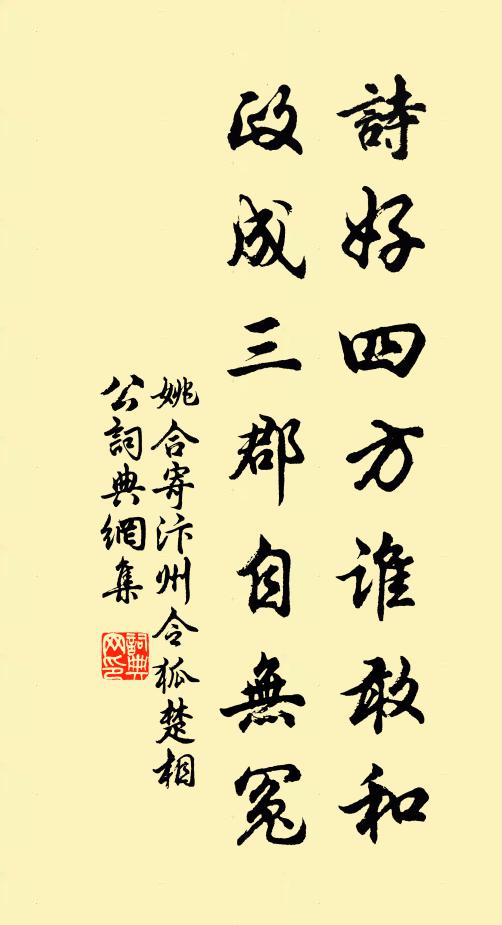 詩好四方誰敢和
政成三郡自無冤
姚合寄汴州令狐楚相
公詞典網集
詞典網印